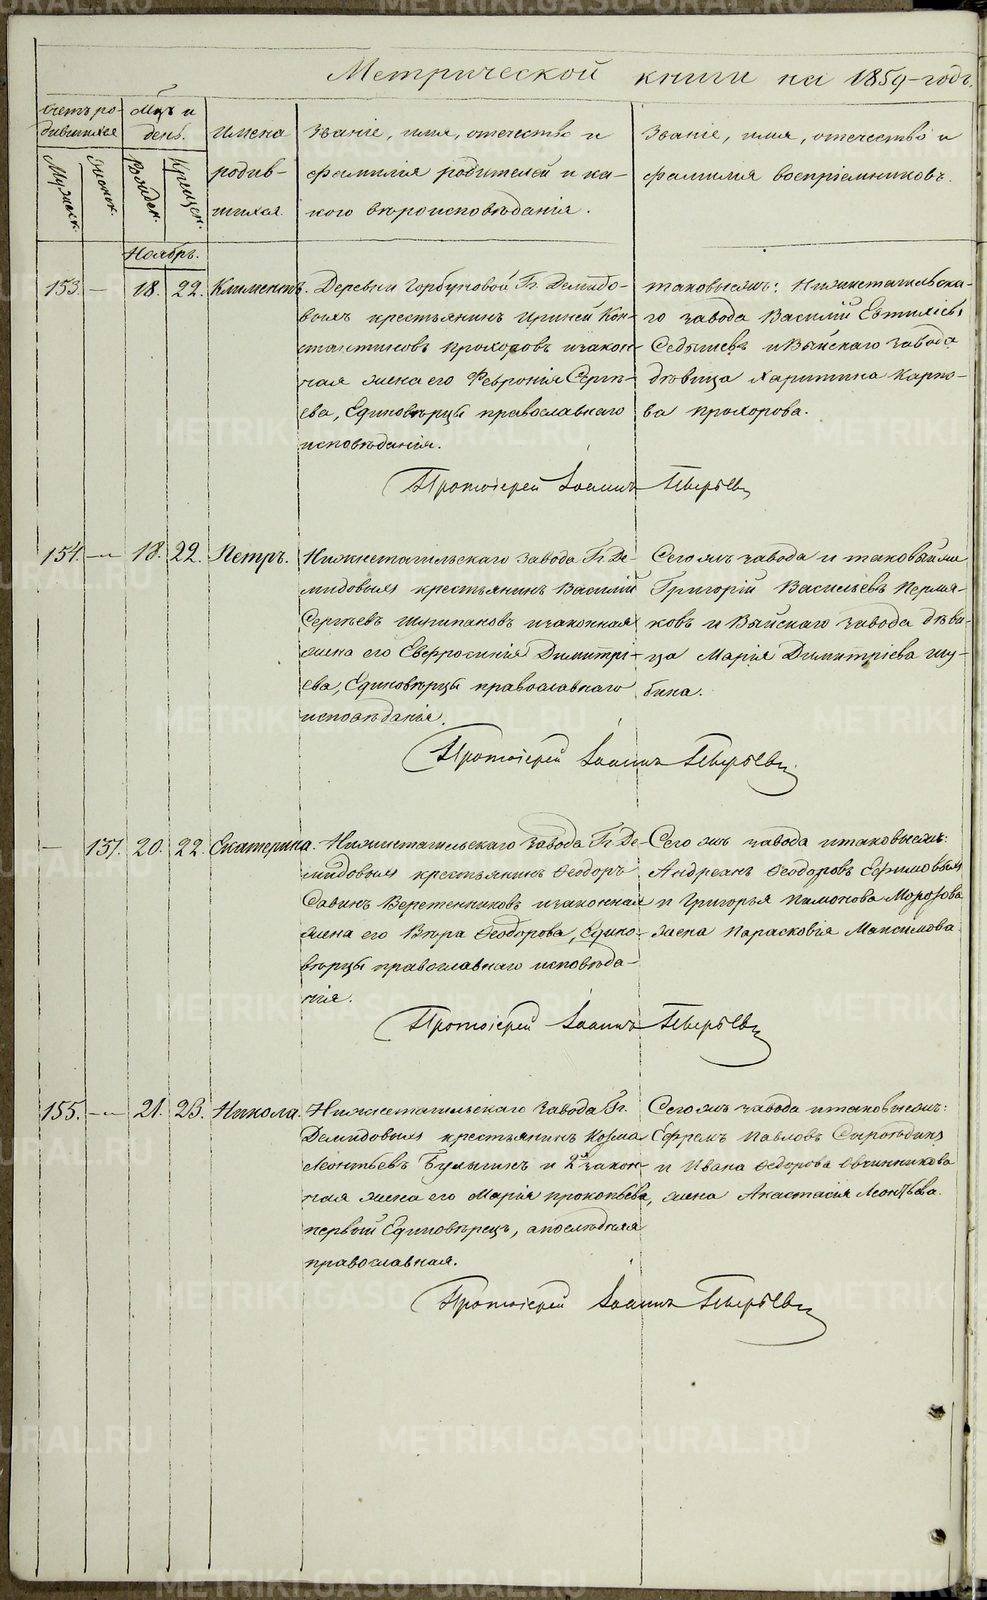 Метрической книги на 1859 годъ.
Счетъ ро-
дившихся
Мужск.
Женск.
Мцъ и
день.
Рожден.
Крещен.
Имена
родив-
шихся.
Званіе, имя, отчество и
фамилія родителей и ка-
кого вѣроисповѣданія.
Званіе, имя, отчество и
фамилія воспріемниковъ.
Ноябрь.
153. — 18. 22. Климентъ.
Деревни Горбуновой Гг. Демидо-
выхъ крестьянинъ Ириней Кон-
стантиновъ Прохоровъ и закон-
ная жена его Феврония Серге-
ева, Единовѣрцы православнаго
исповѣданія.
таковыхже: Нижнетагильска-
го завода Василій Евтихіевъ
Седышевъ и Выйскаго завода
дѣвица Харитина Карпо-
ва Прохорова.
Протоіерей Іоаннъ
154. — 18. 22. Петръ.
Нижнетагильскаго завода Гг. Де-
мидовыхъ крестьянинъ Василій
Сергѣевъ и законная
жена его Евфросинія Димитрі-
ева, Единовѣрцы православнаго
исповѣданія.
Сегожъ завода и таковыйже
Григорій Васильевъ Пермя-
ковъ и Выйскаго завода дѣви-
ца Марія Димитріева Шу-
бина.
Протоіерей Іоаннъ
— 137. 20. 22. Екатерина.
Нижнетагильскаго завода Гг. Де-
мидовыхъ крестьянинъ Ѳеодоръ
Савинъ Веретенниковъ и законная
жена его Вѣра Ѳеодорова, Едино-
вѣрцы православнаго исповѣда-
нія.
Сегожъ завода и таковыхже:
Андреанъ Ѳеодоровъ Ефимовыхъ
и Григорья Пимонова Морозова
жена Парасковія Максимова
Протоіерей Іоаннъ
155. — 21. 23. Никола.
Нижнетагильскаго завода Гг.
Демидовыхъ крестьянинъ Козма
Леонтьевъ Булыгинъ и 2я закон-
ная жена его Марія Прокопьева,
первый Единовѣрецъ, а послѣдняя
православная.
Сегожъ завода и таковыхже:
Ефремъ Павловъ
и Ивана Ѳедорова Овчинникова
жена Анастасія Леонтьева.
Протоіерей Іоаннъ
METRIKI.GASO-URAL.RU